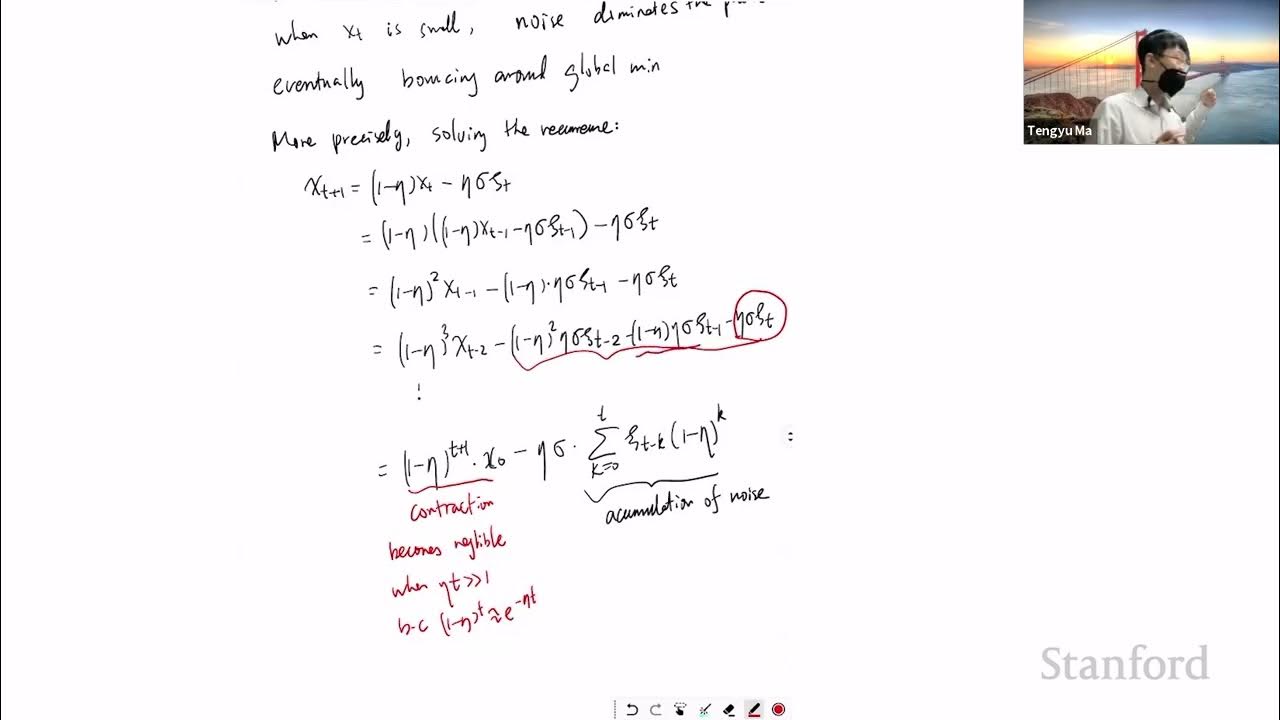 when xt is small, noise dominates the
eventually bouncing around global min
More precisely, solving the recurrence:
x_{t+1} = (1-η)x_t - ησξ_t
= (1-η)((1-η)x_{t-1} - ησξ_{t-1}) - ησξ_t
= (1-η)^2 x_{t-1} - (1-η)·ησξ_{t-1} - ησξ_t
= (1-η)^3 x_{t-2} - (1-η)^2 ησξ_{t-2} - (1-η)ησξ_{t-1} - ησξ_t
⋮
= (1-η)^{t+1}·x_0 - ησ·∑_{k=0}^{t} ξ_{t-k}(1-η)^k =
contraction
acumulation of noise
becomes neglible
when ηt>>1
b.c (1-η)^t ≈ e^{-ηt}
Tengyu Ma
Stanford